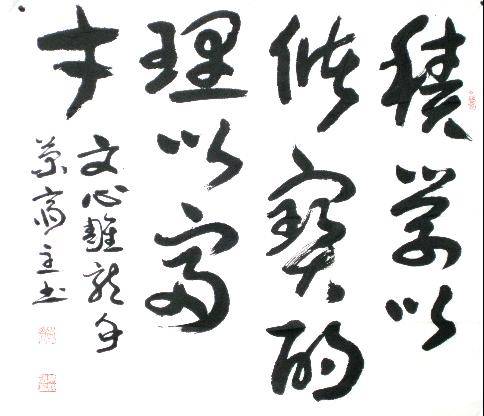 積學以
儲寶酌
理以富
才
文心雕龍句
齋主书